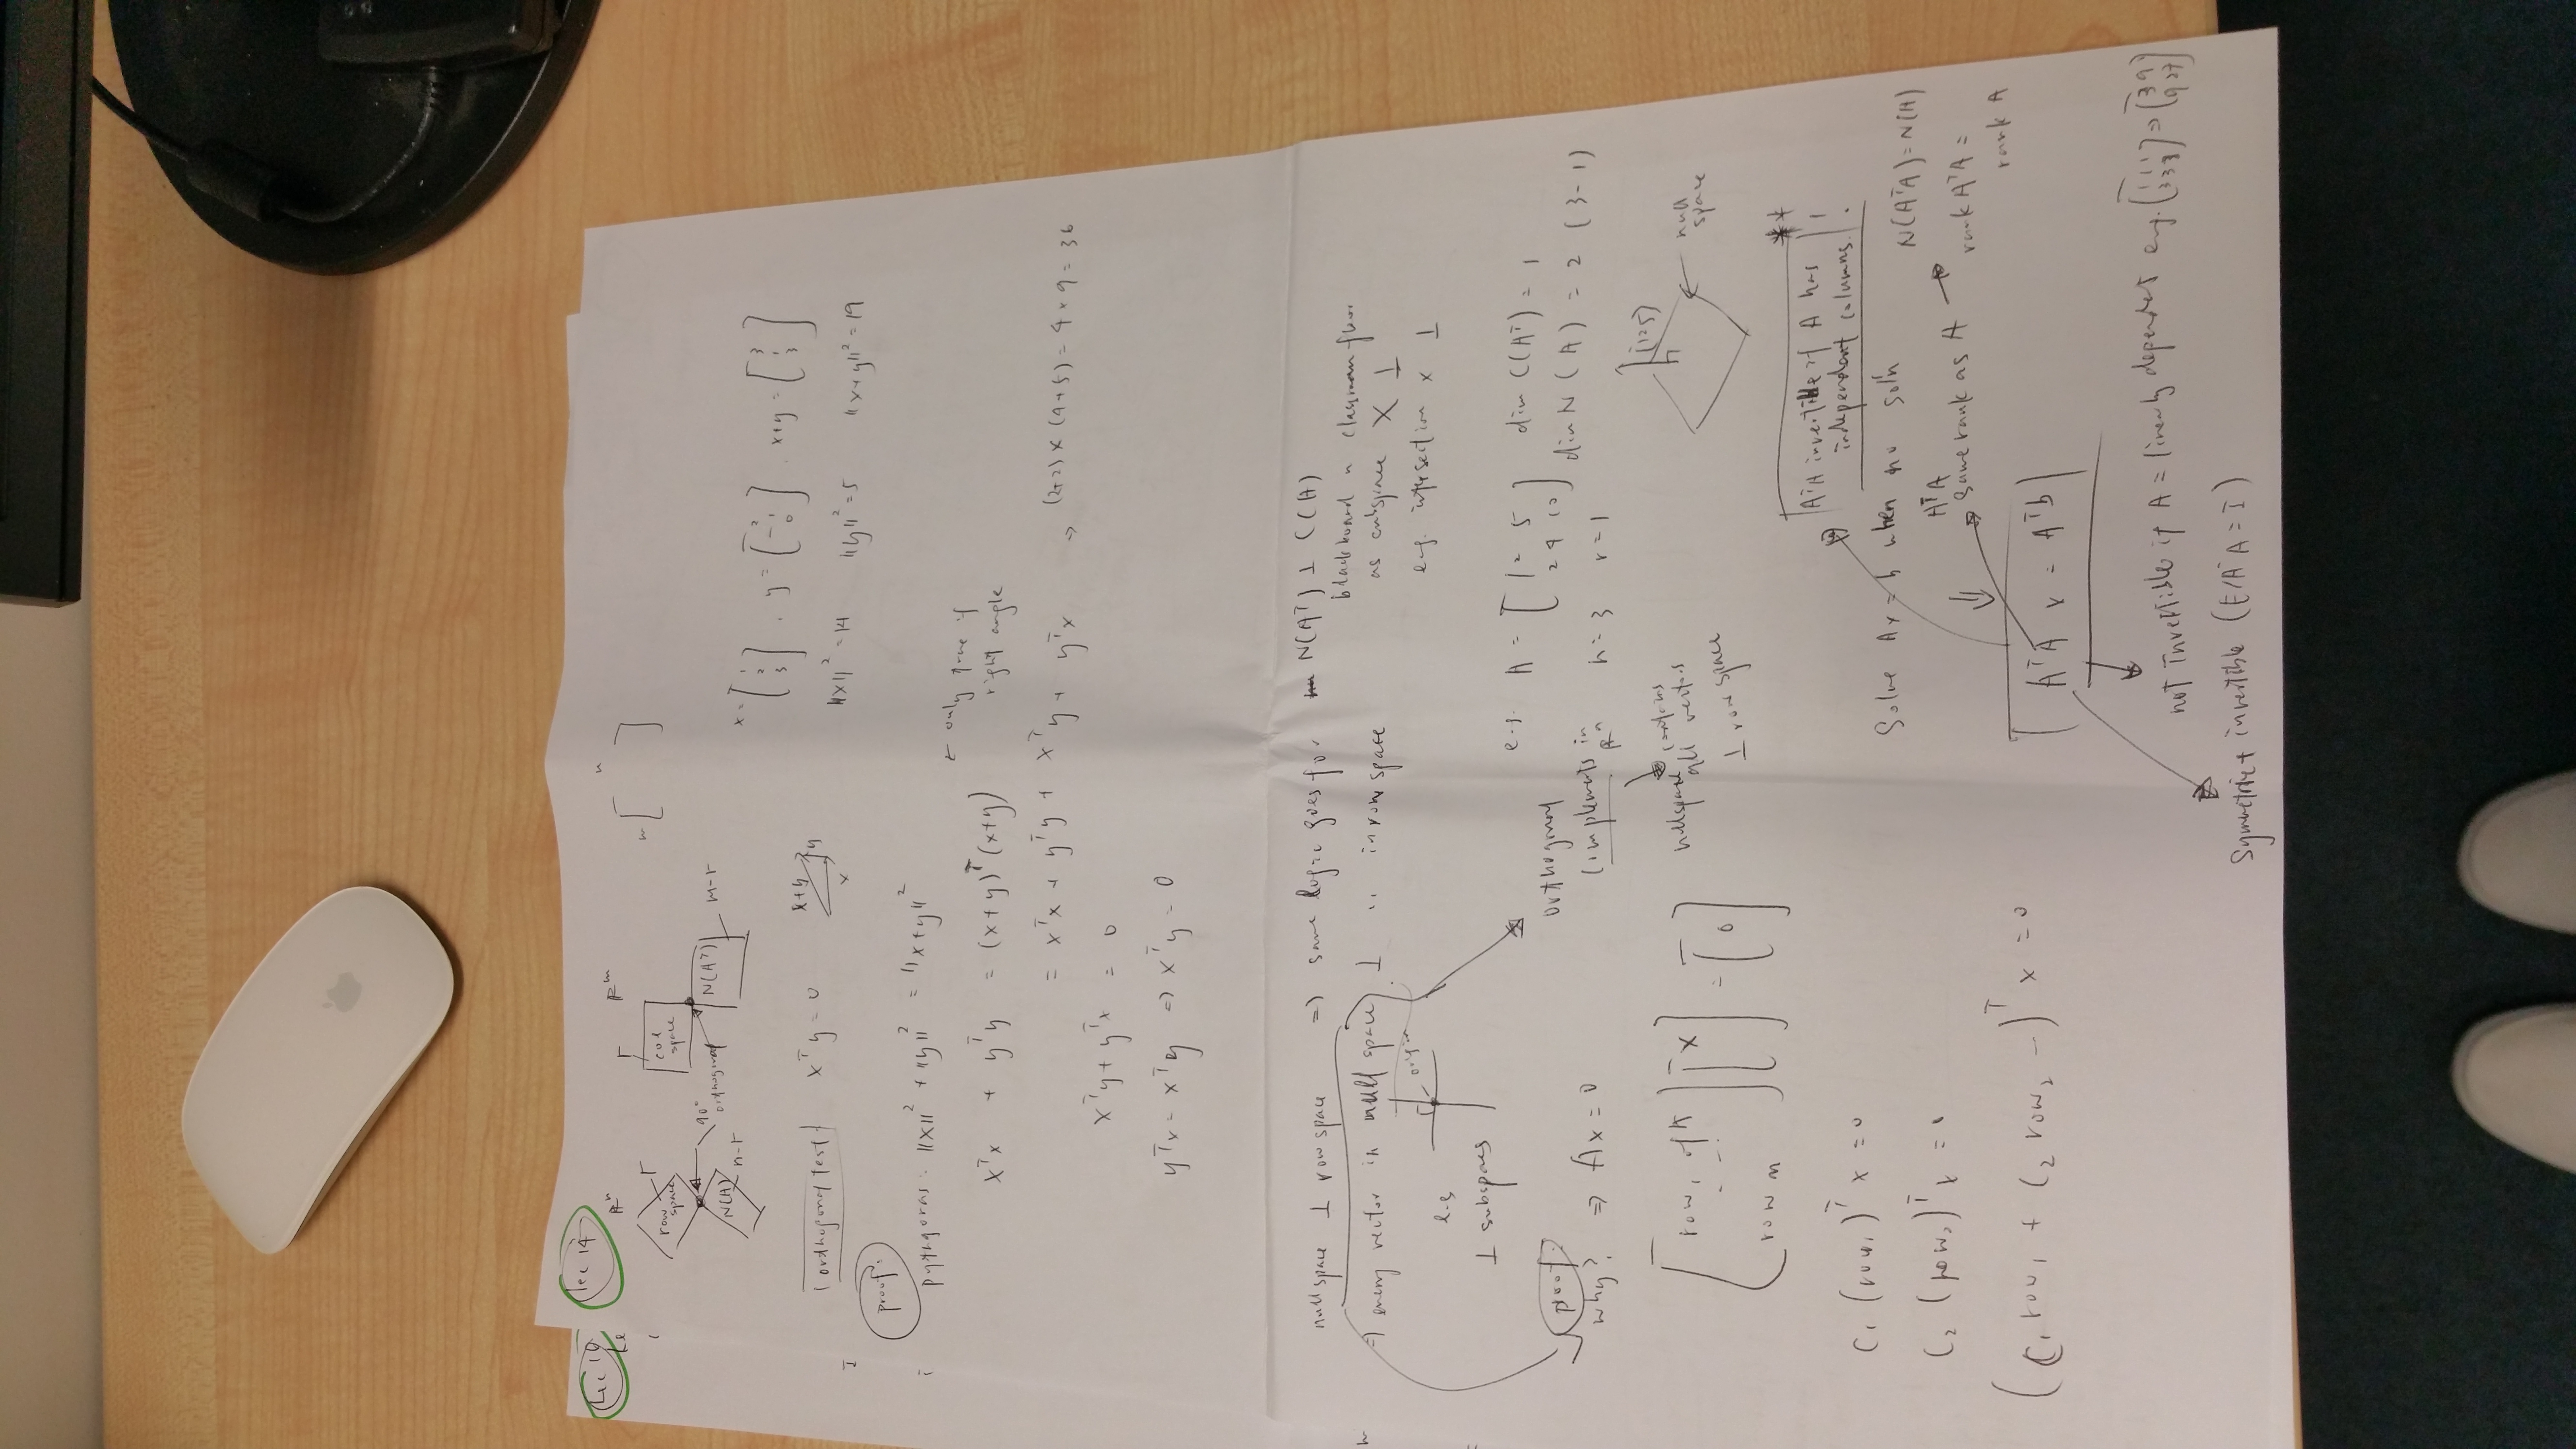 lec 14
Rⁿ
Rᵐ
row space
r
col space
r
90°
orthogonal
N(A)
n-r
N(Aᵀ)
m-r
m [ ] n
orthogonal test
xᵀy = 0
x+y
y
x
x = [1 2 3], y = [2 -1 0], x+y = [3 1 3]
||x||² = 14 ||y||² = 5 ||x+y||² = 19
proof:
pythgoras: ||x||² + ||y||² = ||x+y||²
xᵀx + yᵀy = (x+y)ᵀ(x+y)
← only true if
right angle
= xᵀx + yᵀy + xᵀy + yᵀx
⇒ (2+2) × (4+5) = 4 × 9 = 36
xᵀy + yᵀx = 0
yᵀx = xᵀy ⇒ xᵀy = 0
nullspace ⊥ row space ⇒ same logic goes for N(Aᵀ) ⊥ C(A)
⇒ every vector in null space ⊥ " in row space
blackboard n classroom floor
as subspace X ⊥
e.g. intersection x ⊥
origin
e.g
⊥ subspaces
orthogonal
complements in Rⁿ
nullspace contains
all vectors
⊥ row space
e.g. A = [1 2 5
2 4 10] dim C(Aᵀ) = 1
dim N(A) = 2 (3-1)
n = 3 r = 1
(125)
null
space
proof:
why? ⇒ Ax = 0
[row₁ of A
...
row m] [x] = [0]
C₁(row₁)ᵀ x = 0
C₂(row₂)ᵀ x = 0
(C₁ row₁ + C₂ row₂ -)ᵀ x = 0
**
AᵀA invertible if A has
independent columns. !
Solve Ax = b when no soln
⇓
AᵀA
same rank as A → N(AᵀA) = N(A)
rank AᵀA =
rank A
AᵀA x = Aᵀb
not invertible if A = linearly dependent e.g. [1 1 1
3 3 3] ⇒ [3 9
9 27]
Symmetric + invertible (E/A⁻A = I)